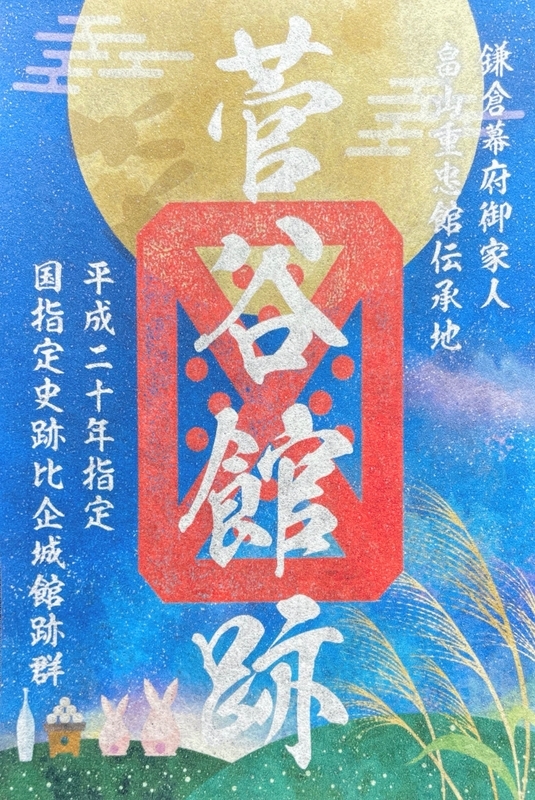 鎌倉幕府御家人
畠山重忠館伝承地
菅谷館跡
平成二十年指定
国指定史跡比企城館跡群